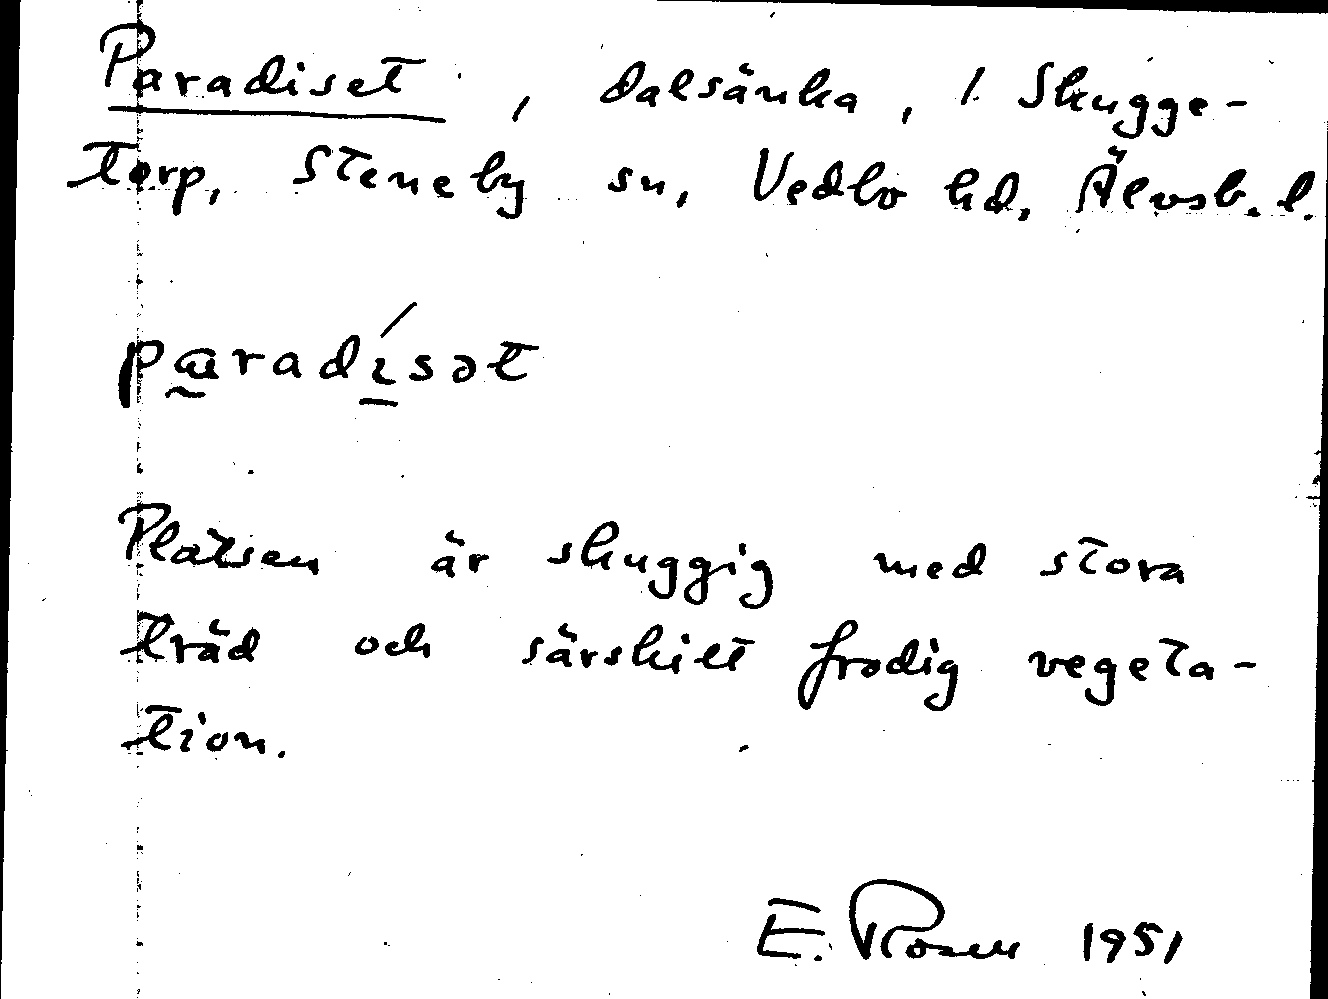 Paradiset, dalsänka, 1. Skugge-
torp, Steneby sn, Vedbo hd, Älvsb. l.
paradísət
Platsen är skuggig med stora
träd och särskilt frodig vegeta-
tion.
E. Rosen 1951